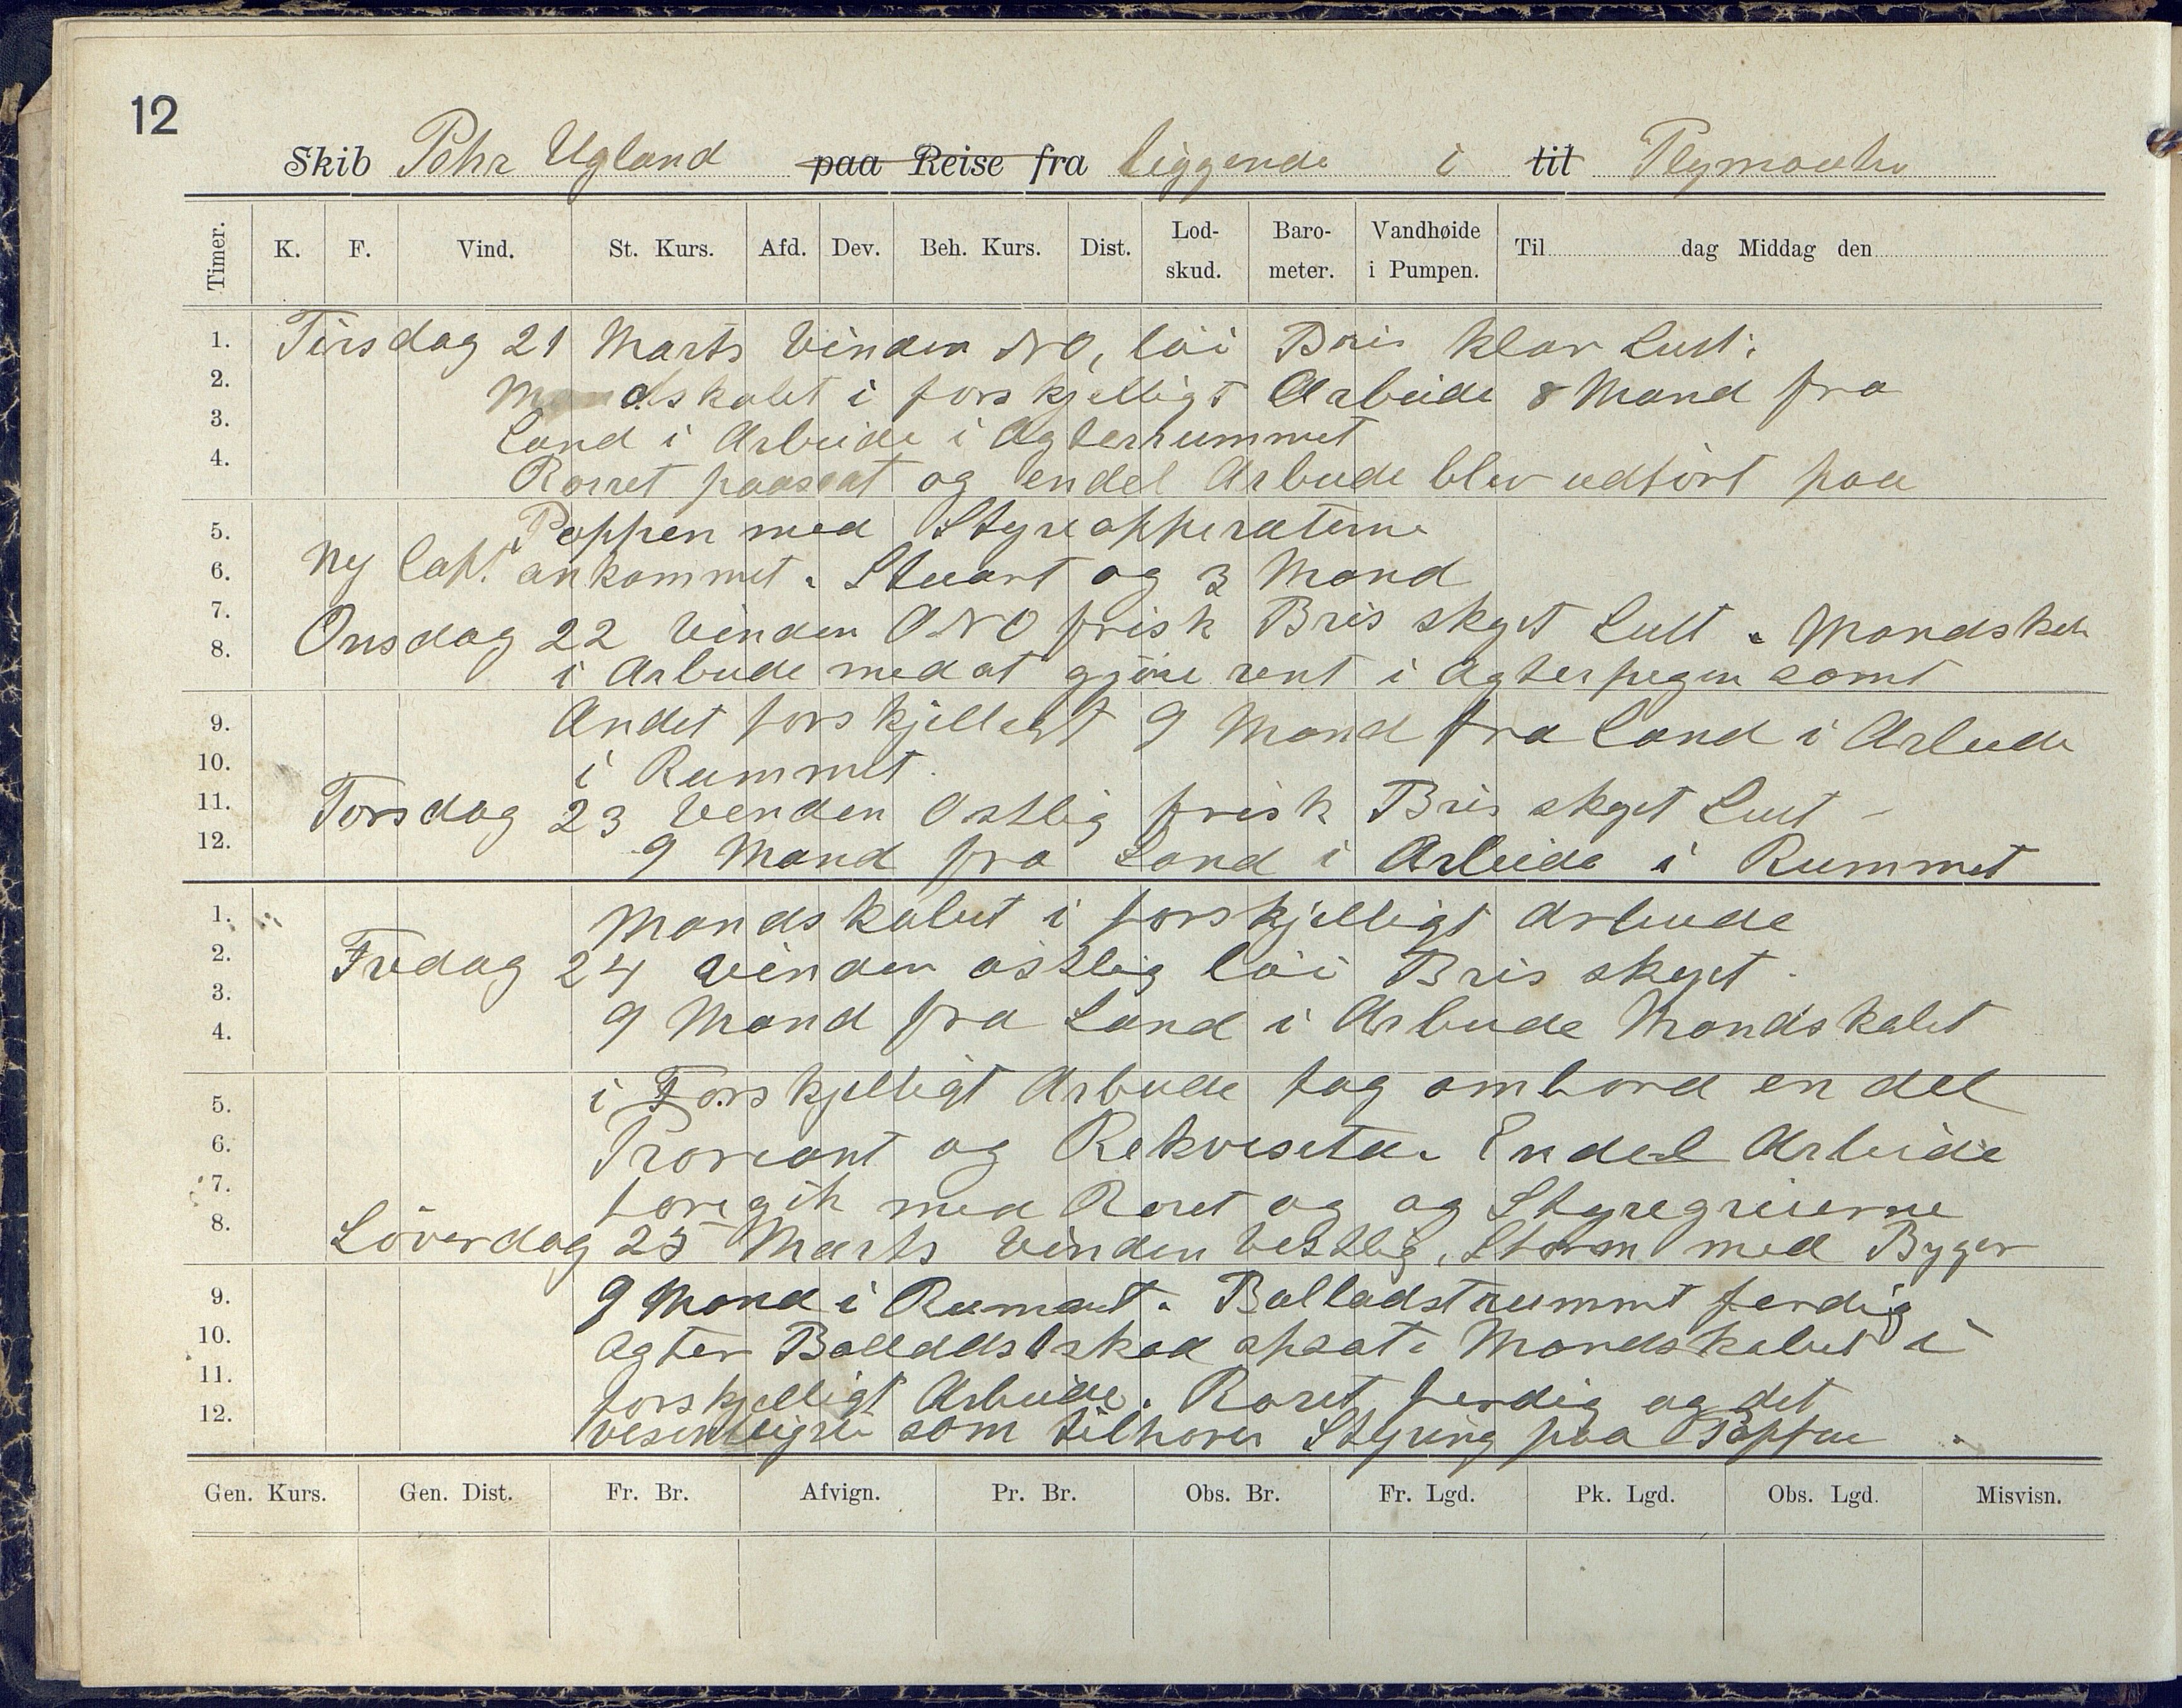 12
Skib Pehr Ugland paa Reise fra liggende i til Plymouth
Timer. K. F. Vind. St. Kurs. Afd. Dev. Beh. Kurs. Dist. Lod-skud. Baro-meter. Vandhøide i Pumpen. Til dag Middag den
1. Tirsdag 21 Marts Vinden NO, löi Bris klar Luft.
2. Mandskabet i forskjelligt Arbeide 8 Mand fra
3. Land i Arbeide i Agterrummet
4. Rorret paasat og endel Arbeide blev udfört paa
5. Poppen med Styreapperaterne
6. Ny Capt. ankommet. Stuart og 3 Mand
7. Onsdag 22 Vinden ONO frisk Bris skyet Luft. Mandskab
8. i Arbeide med at gjöre rent i Agterpegen samt
9. Andet forskjelligt 9 Mand fra Land i Arbeide
10. i Rummet.
11. Torsdag 23 Vinden Ostlig frisk Bris skyet Luft –
12. 9 Mand fra Land i Arbeide i Rummet
1. Mandskabet i forskjelligt Arbeide
2. Fredag 24 Vinden östlig löi Bris skyet.
3. 9 Mand fra Land i Arbeide Mandskabet
4.
5. i Forskjelligt Arbeide tog ombord en del
6. Proviant og Rekvisita. Endel Arbeide
7. foregik med Roret og og Styregreierne
8. Löverdag 25 Marts Vinden Vestlig, Storm med Byger
9. 9 Mand i Rummet. Balladstrummet ferdig
10. Agter Balladstskod opsat. Mandskabet i
11. forskjelligt Arbeide. Roret ferdig og det
12. vesentligste som tilhører Styring paa Poppen.
Gen. Kurs. Gen. Dist. Fr. Br. Afvign. Pr. Br. Obs. Br. Fr. Lgd. Pk. Lgd. Obs. Lgd. Misvisn.